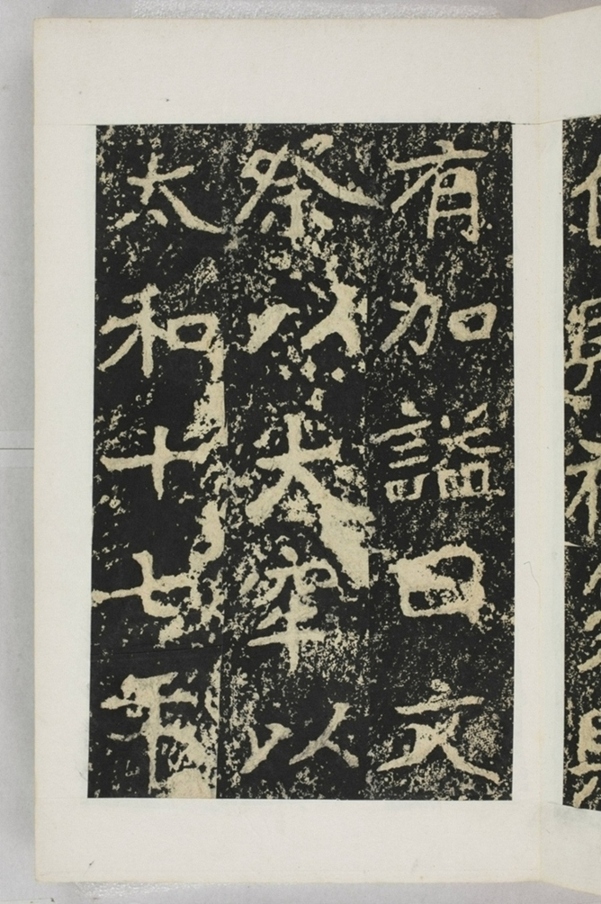 有加謚曰文
祭以大牢以
太和十七年